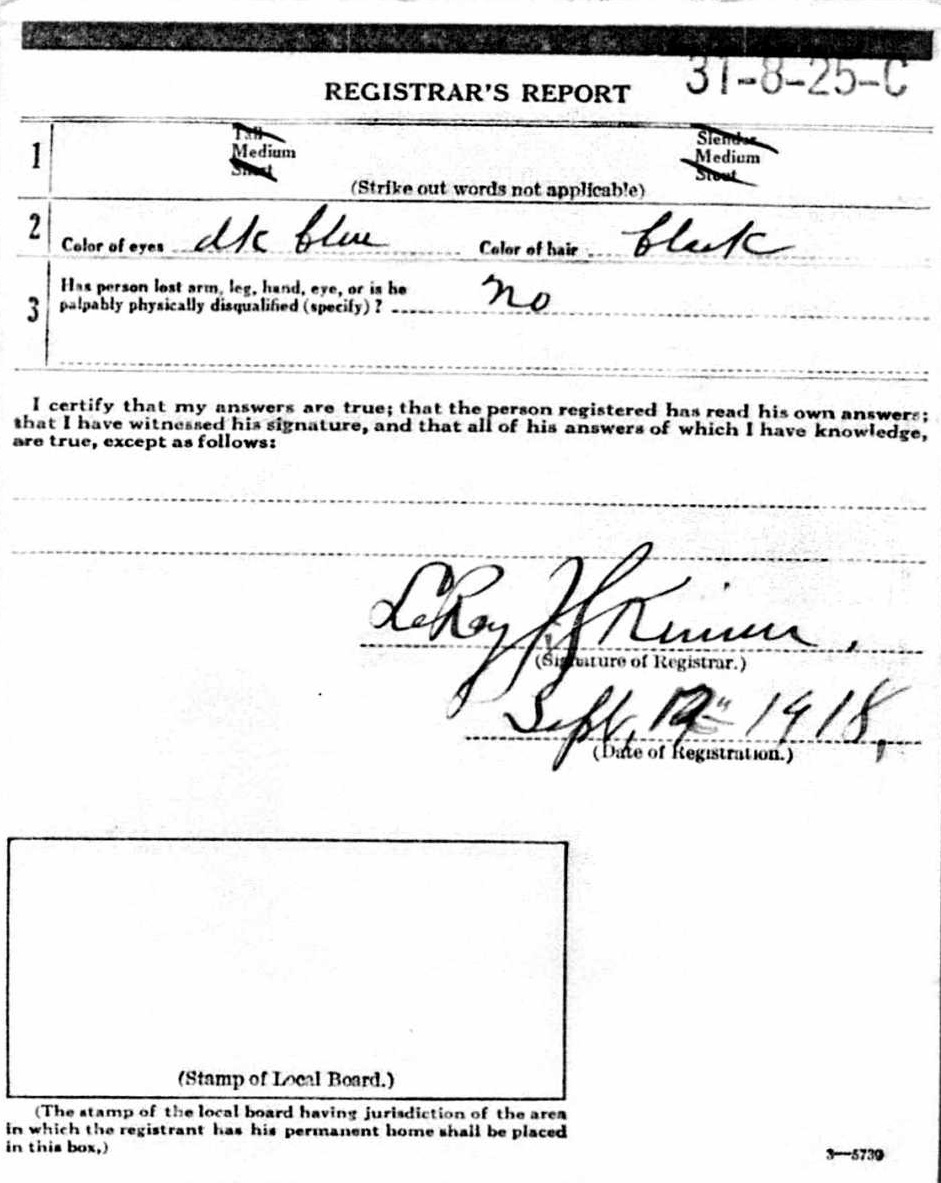 31-8-25-C
REGISTRAR'S REPORT
1
Tall
Medium
Short
Slender
Medium
Stout
(Strike out words not applicable)
2 Color of eyes dk blue Color of hair black
3 Has person lost arm, leg, hand, eye, or is he
palpably physically disqualified (specify)? no
I certify that my answers are true; that the person registered has read his own answers;
that I have witnessed his signature, and that all of his answers of which I have knowledge,
are true, except as follows:
LeRoy
(Signature of Registrar.)
Sept, 12th 1918,
(Date of Registration.)
(Stamp of Local Board.)
(The stamp of the local board having jurisdiction of the area
in which the registrant has his permanent home shall be placed
in this box.)
3—5739